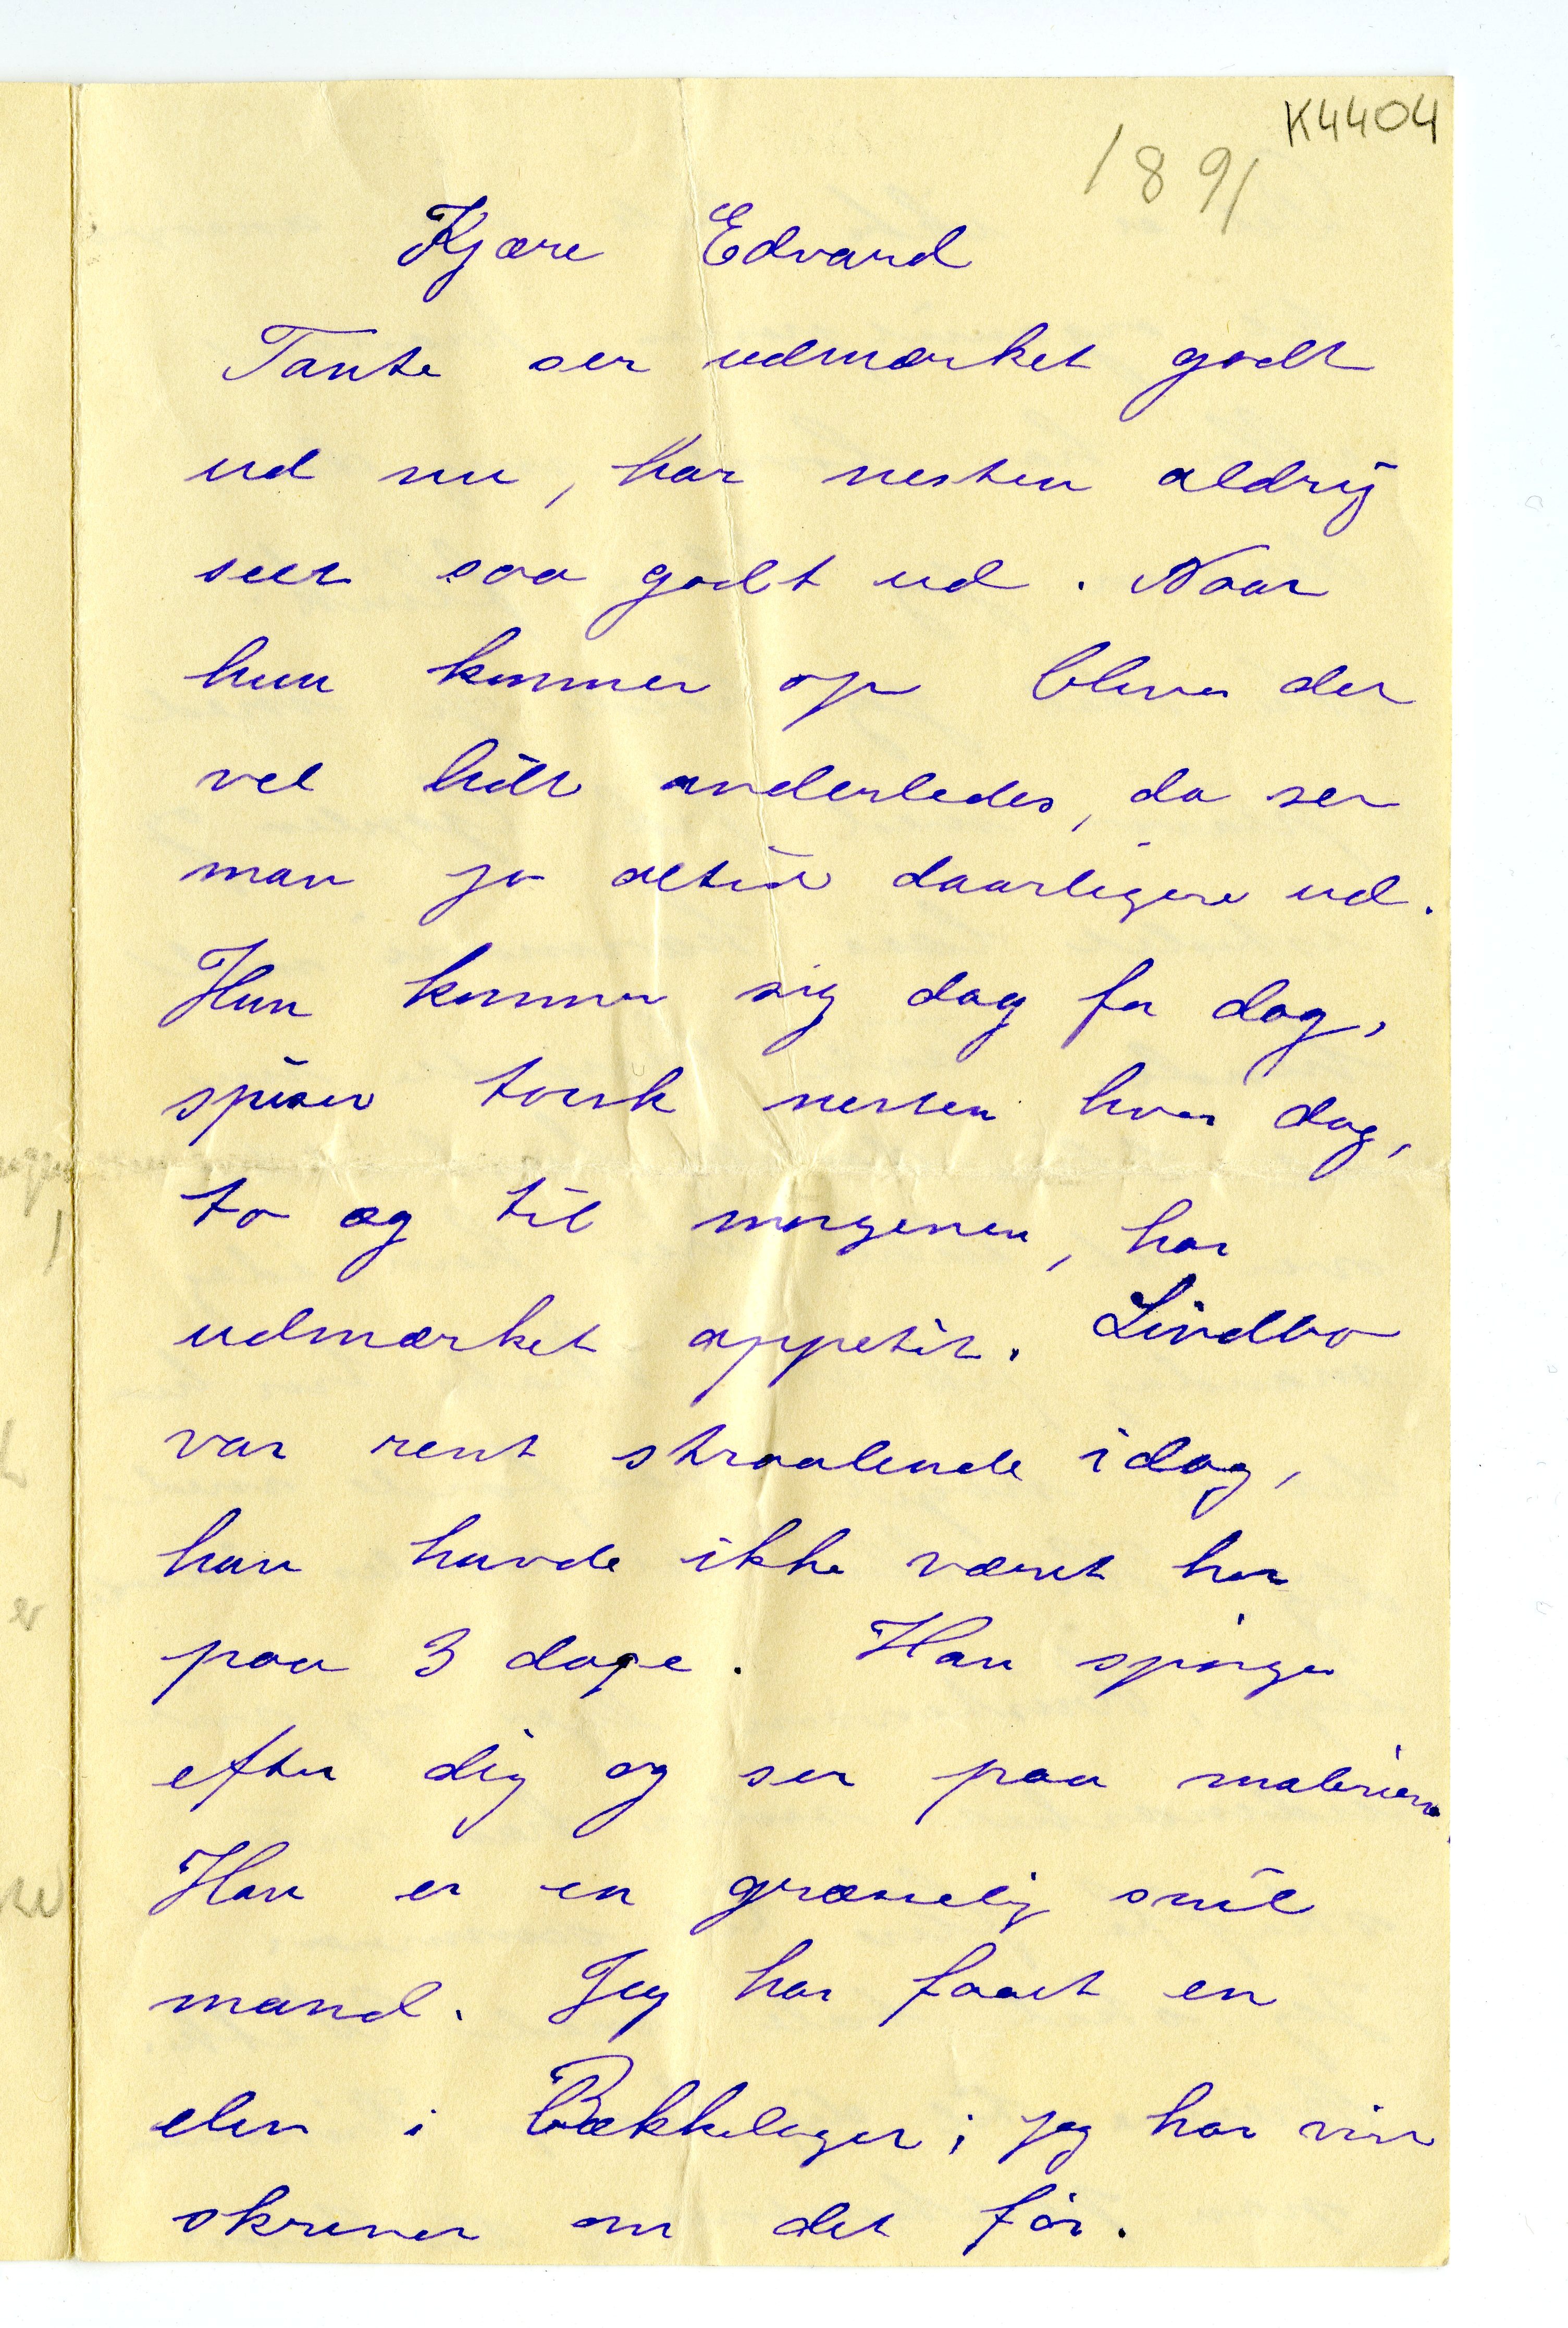 K4404
1891
Kjære Edvard
Tante ser udmærket godt
ud nu, har nesten aldrig
seet saa godt ud. Naar
hun kommer op bliver det
vel lidt anderledes, da ser
man jo altid daarligere ud.
Hun kommer sig dag for dag,
spiser torsk nesten hver dag,
to æg til morgenen, har
udmærket appetit. Lindboe
var rent straalende idag,
han havde ikke været her
paa 3 dage. Han spørger
efter dig og ser paa malerierne.
Han er en græsselig snil
mand. Jeg har faaet en
elev i Bækkelaget; jeg har vist
skrevet om det før.